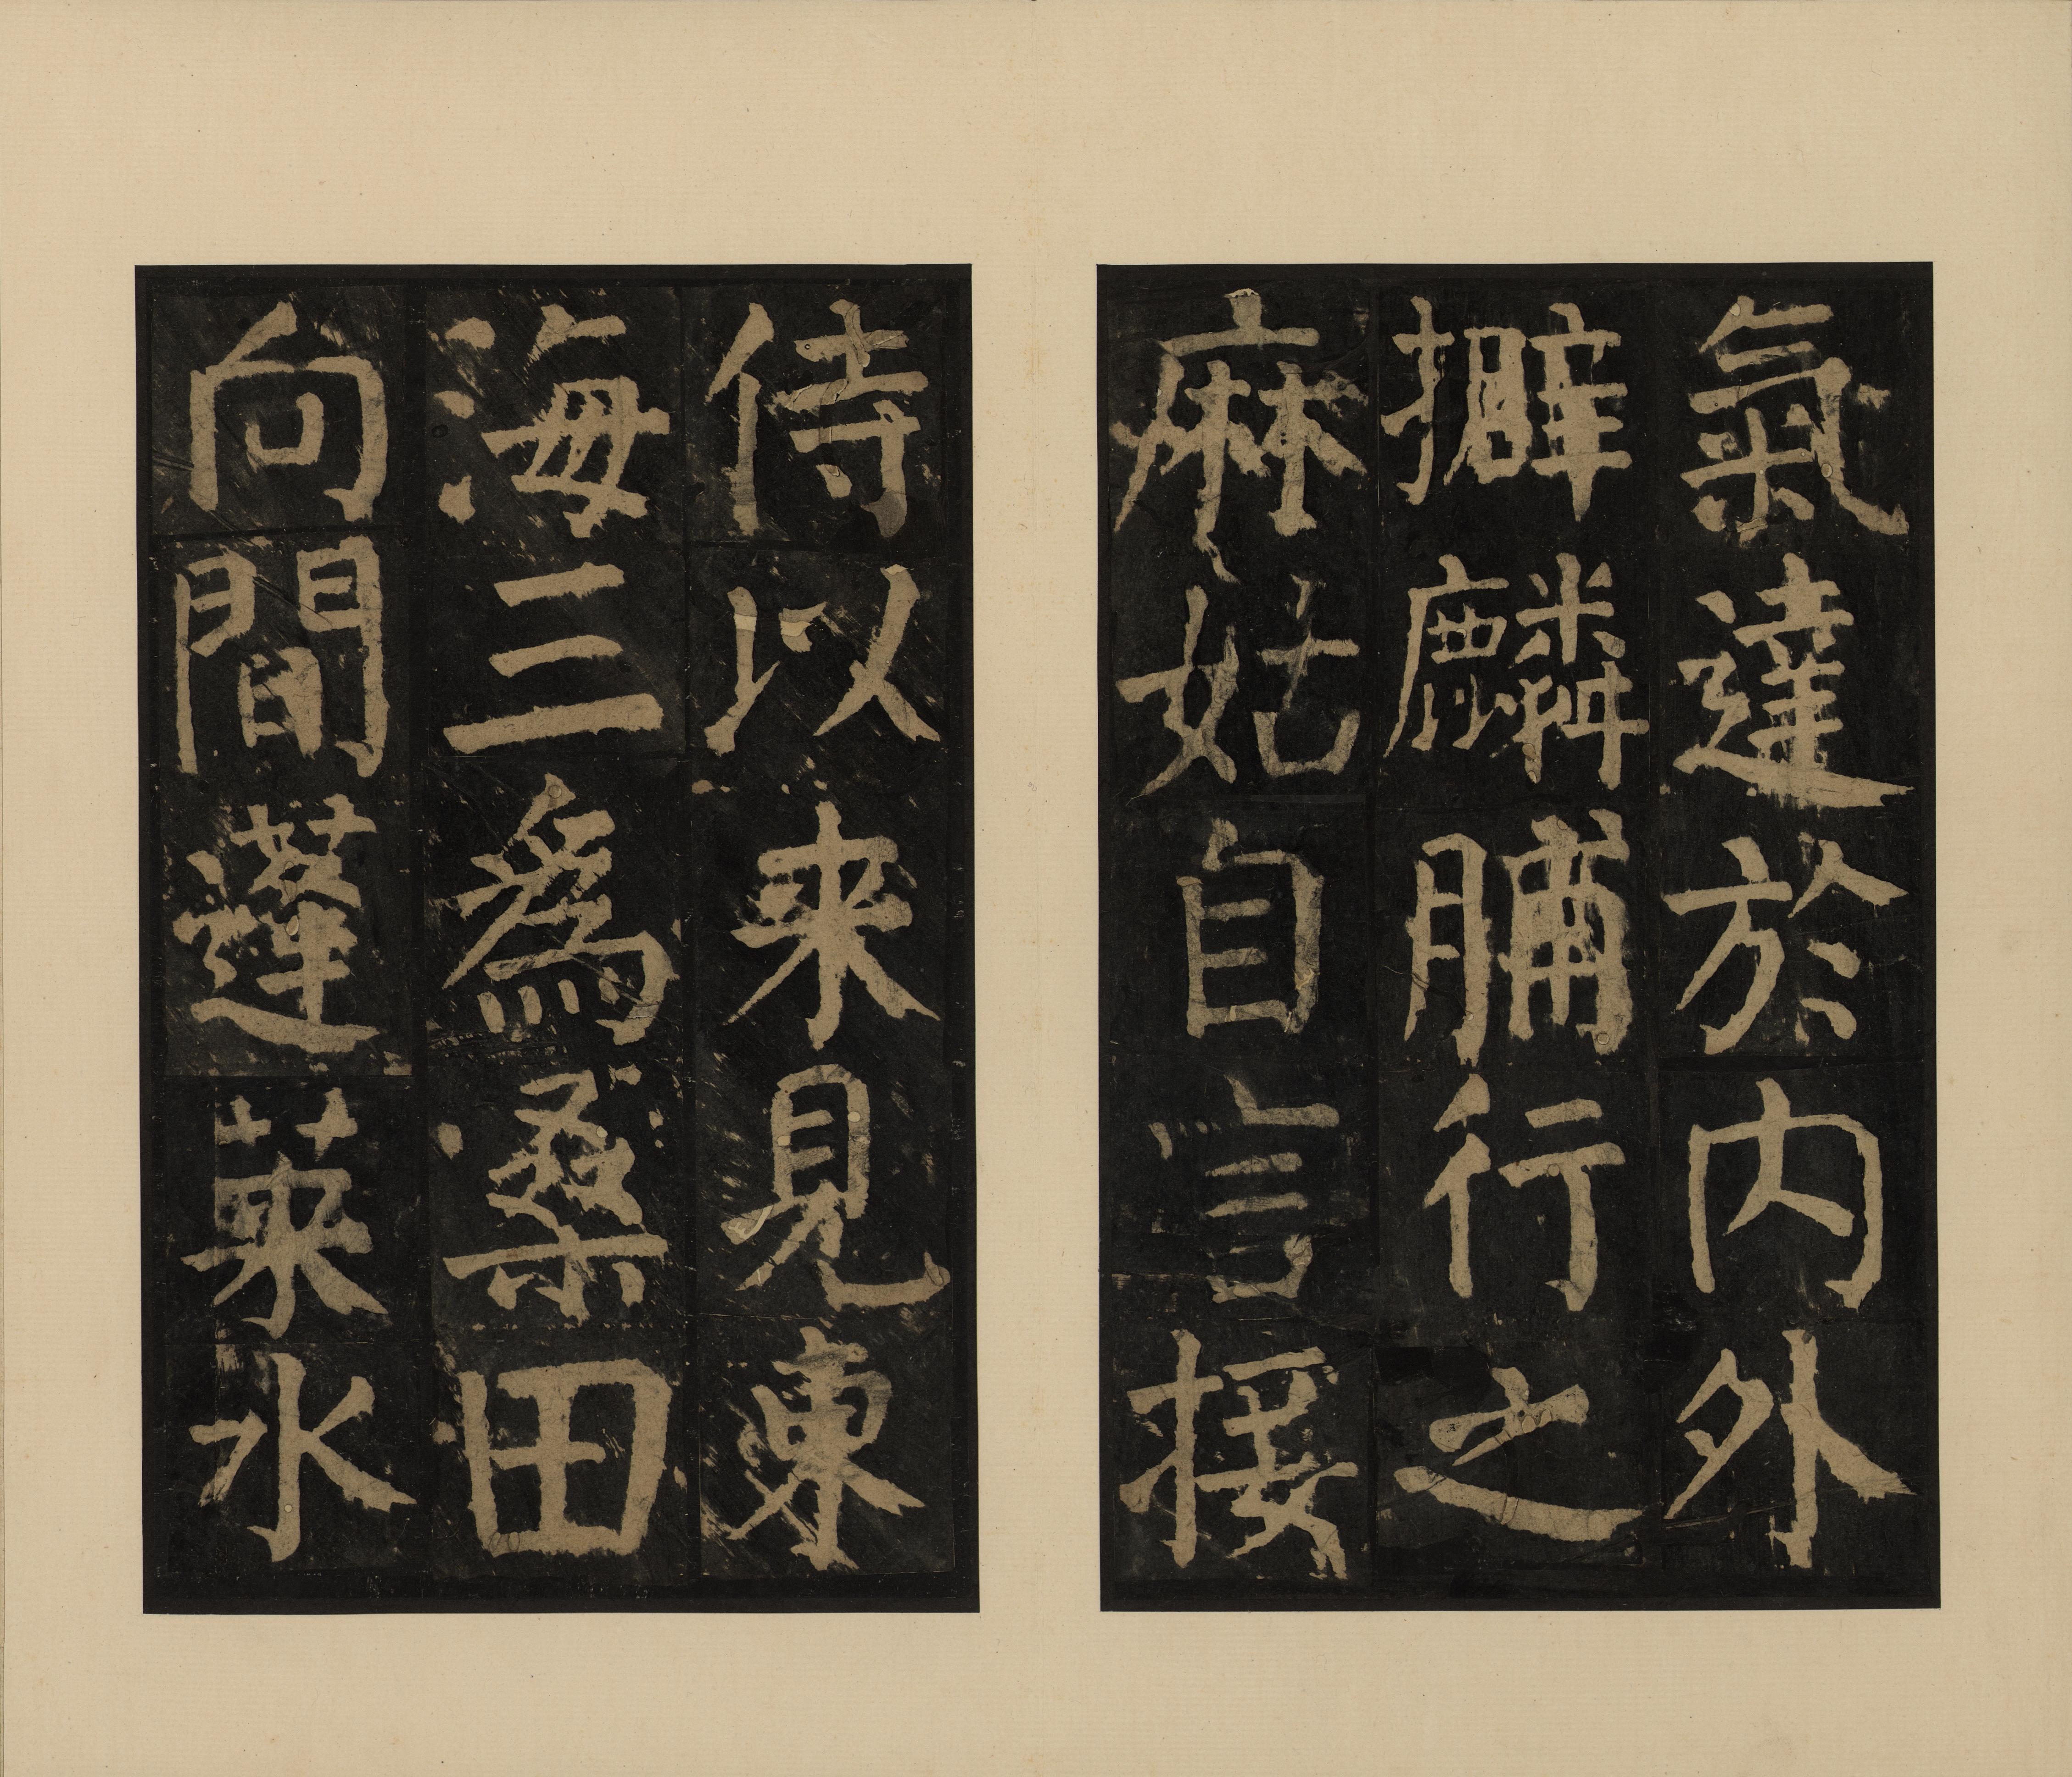 氣達於內外
擗麟脯行之
麻姑自言接
侍以来見東
海三為桑田
向間蓬萊水